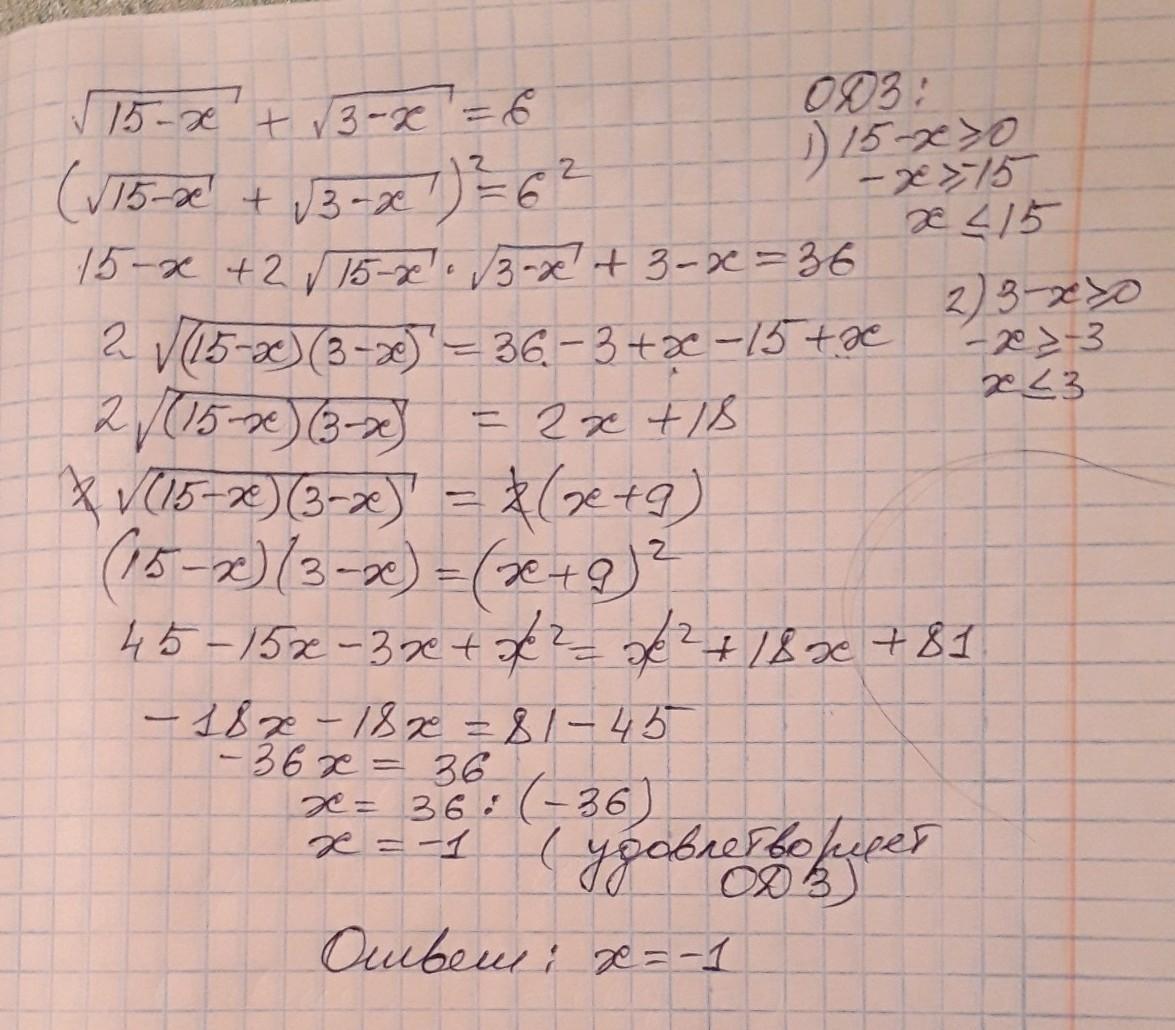 √(15-x) + √(3-x) = 6
(√(15-x) + √(3-x))² = 6²
15-x + 2√(15-x) · √(3-x) + 3-x = 36
2√((15-x)(3-x)) = 36-3+x-15+x
2√((15-x)(3-x)) = 2x+18
2√((15-x)(3-x)) = 2(x+9)
(15-x)(3-x) = (x+9)²
45-15x-3x+x² = x²+18x+81
-18x-18x = 81-45
-36x = 36
x = 36 : (-36)
x = -1 (удовлетворяет
ОДЗ)
Ответ: x = -1
ОДЗ:
1) 15-x ≥ 0
-x ≥ -15
x ≤ 15
2) 3-x ≥ 0
-x ≥ -3
x ≤ 3